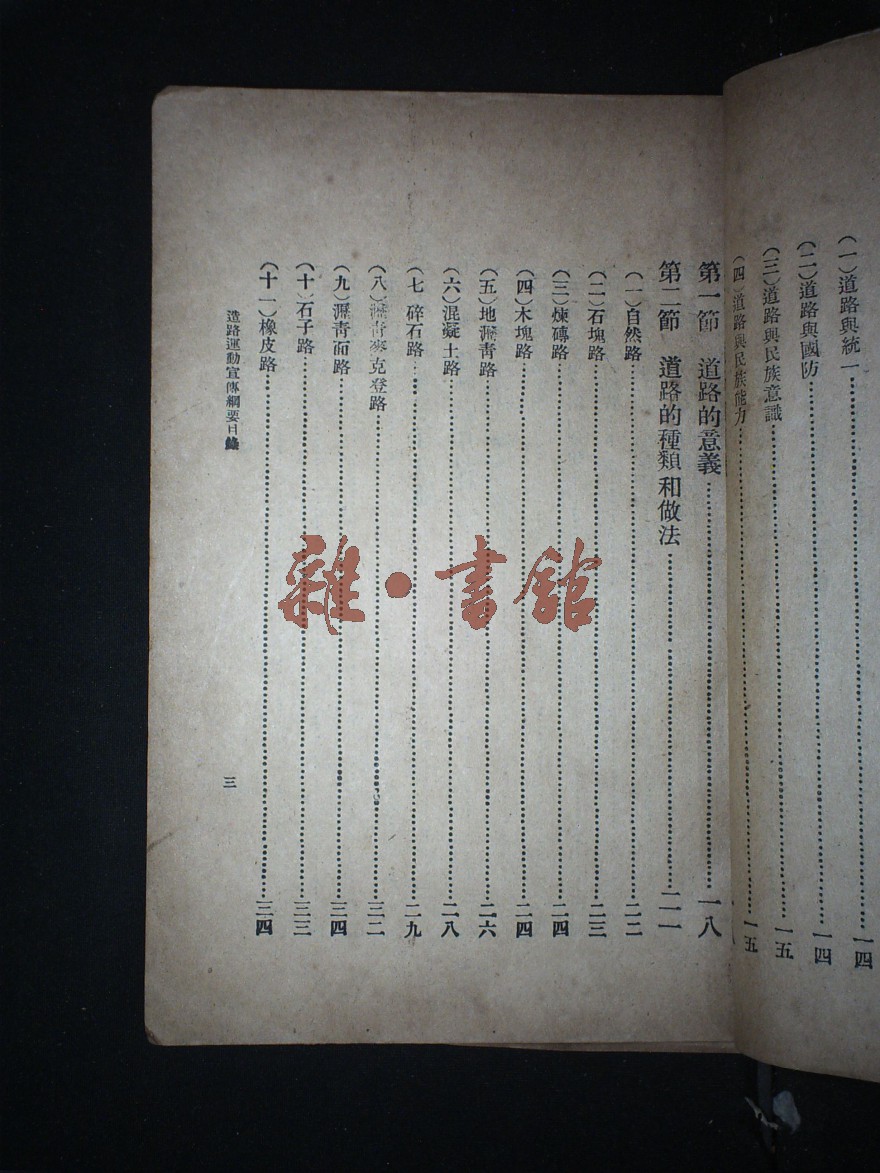 (一)道路與統一……一四
(二)道路與國防……一四
(三)道路與民族意識……一五
(四)道路與民族能力……一五
第一節 道路的意義……一八
第二節 道路的種類和做法……二一
(一)自然路……二二
(二)石塊路……二三
(三)煉磚路……二四
(四)木塊路……二四
(五)地瀝青路……二六
(六)混凝土路……二八
(七)碎石路……二九
(八)瀝青麥克登路……三二
(九)瀝青面路……三四
(十)石子路……三三
(十一)橡皮路……三四
造路運動宣傳綱要目錄 三
雜·書館